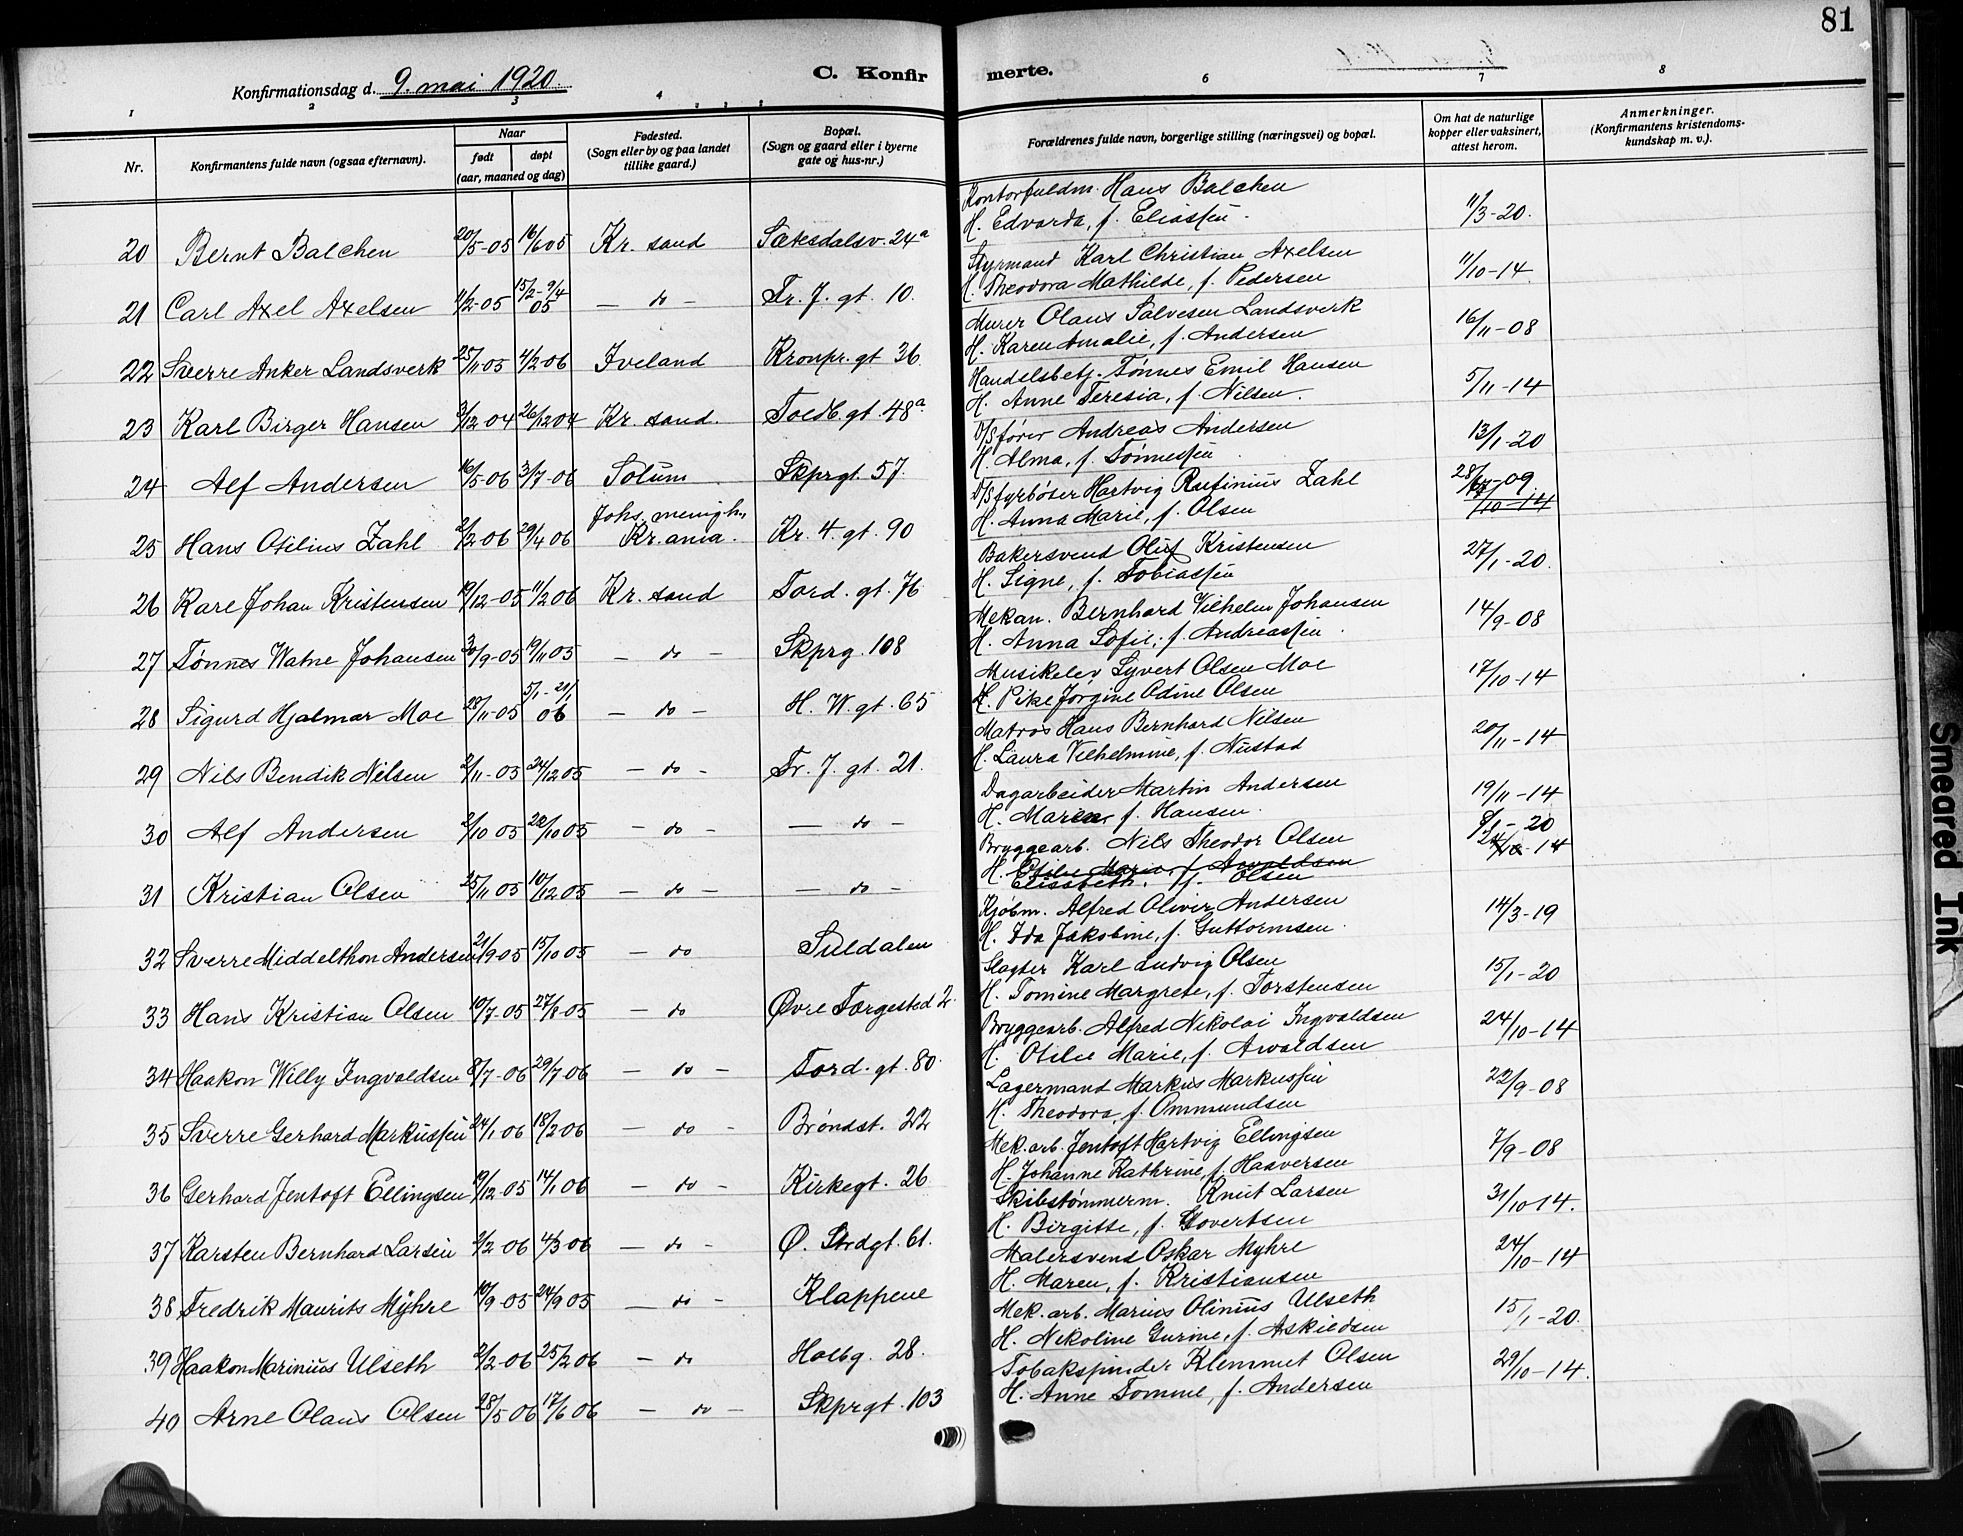 81
Konfirmationsdag d. 9. mai 1920.
C. Konfirmerte.
1 2 3 4 6 7 8
Nr.
Konfirmantens fulde navn (ogsaa efternavn).
Naar
født
døpt
(aar, maaned og dag)
Fødested.
(Sogn eller by og paa landet
tillike gaard.)
Bopæl.
(Sogn og gaard eller i byerne
gate og hus-nr.)
Forældrenes fulde navn, borgerlige stilling (næringsvei) og bopæl.
Om hat de naturlige
kopper eller vaksinert,
attest herom.
Anmerkninger.
(Konfirmantens kristendoms-
kundskap m. v.).
Kontorfuldm. Hans Balchen
20 Bernt Balchen 20/5-05 16/6 05 Kr. sand Sætesdalsv. 24a H. Edvarda, f. Eliassen. 11/3-20.
Styrmand Karl Christian Axelsen
21 Carl Axel Axelsen 4/2-05 15/2-9/4 05 — do — Fr. J. gt. 10. H. Theodora Mathilde, f. Pedersen 11/10-14.
Murer Olaus Salvesen Landsverk
22 Sverre Anker Landsverk 25/11 05 4/2 06 Iveland Kronpr. gt 36 H. Karen Amalie, f. Andersen 16/11-08
Handelsbetj. Tønnes Emil Hansen
23 Karl Birger Hansen 3/12-04 26/12 04 Kr. sand. Toldb. gt. 48a. H. Anne Teresia, f. Nilsen. 5/11-14
D/S fører Andreas Andersen
24 Alf Andersen 16/5-06 3/7-06 Solum Skprgt. 57. H. Alma, f. Tønnessen 13/1-20
D/S fyrbøter Hartvig Rufinius Zahl
25 Hans Otilius Zahl 2/2-06 29/4 06 Johs. menigh., Kr.ania. Kr. 4. gt. 90 H. Anna Marie, f. Olsen 28/-09.
Bakersvend Oluf Kristensen
26 Kare Johan Kristensen 19/12-05 11/2 06 Kr. sand Tord. gt. 76 H. Signe, f. Tobiassen 27/1-20.
Mekan. Bernhard Vilhelm Johansen
27 Tønnes Watne Johansen 30/9-05 19/11 05 — do — Skprg. 108 H. Anna Sofie, f. Andreassen. 14/9-08
Musikelev Syvert Olsen Moe
28 Sigurd Hjalmar Moe 28/11-05 5/1-21/1 06 — do — H. W. gt. 65 H. Pike Jørgine Odine Olsen 17/10-14
Matros Hans Bernhard Nilsen
29 Nils Bendik Nilsen 2/11-05 24/12 05 — do — Fr. J. gt. 21. H. Laura Vilhelmine, f. Nustad 20/11-14
Dagarbeider Martin Andersen
30 Alf Andersen 2/10 05 22/10 05 — do — — do — H. Maren f. Hansen. 19/11-14
Bryggearb. Nils Theodor Olsen
31 Kristian Olsen 25/11 05 10/12 05 — do — — do — H. Otilie Marie, f. Awaldsen
Elisabeth, f. Olsen
Kjøbm. Alfred Oliver Andersen
32 Sverre Middelthon Andersen 21/9 05 15/10 05 — do Suldalen H. Ida Jakobine, f. Guttormsen. 14/3-19
Slagter Karl Ludvig Olsen
33 Hans Kristian Olsen 10/7-05 27/8-05 — do Øvre Torgested 2. H. Tomine Margrete, f. Torstensen 15/1-20
Bryggearb. Alfred Nikolai Ingvaldsen
34 Haakon Willy Ingvaldsen 8/7-06 29/7-06 — do — Tord. gt. 80. H. Otilie Marie, f. Awaldsen 24/10-14
Lagermand Markus Markussen
35 Sverre Gerhard Markussen 24/1 06 18/2 06 — do — Brøndst. 22 H. Theodora, f. Ommundsen 22/9-08
Mek. arb. Jentoft Hartvig Ellingsen
36 Gerhard Jentoft Ellingsen 19/12-05 14/1 06 — do — Kirkegt. 26 H. Johanne Kathrine, f. Haaversen 7/9-08
Skibstømmerm. Knut Larsen
37 Karsten Bernhard Larsen 2/2-06 4/3 06 — do — Ø. Strdgt. 61. H. Birgitte, f. Govertsen 31/10 14.
Malersvend Oskar Myhre
38 Fredrik Maurits Myhre 10/9-05 24/9 05 — do — Klappene H. Maren, f. Kristiansen 24/10-14
Mek. arb. Marius Olinius Ulseth
39 Haakon Marinius Ulseth 2/2-06 25/2 06 — do Holbg. 28. H. Nikoline Gurine, f. Askildsen 15/1-20.
Tobakspinder Klemmet Olsen
40 Arne Olaus Olsen 28/5 06 17/6 06 — do — Skprgt. 103 H. Anne Tomine, f. Andersen 29/10-14.
Smeared Ink